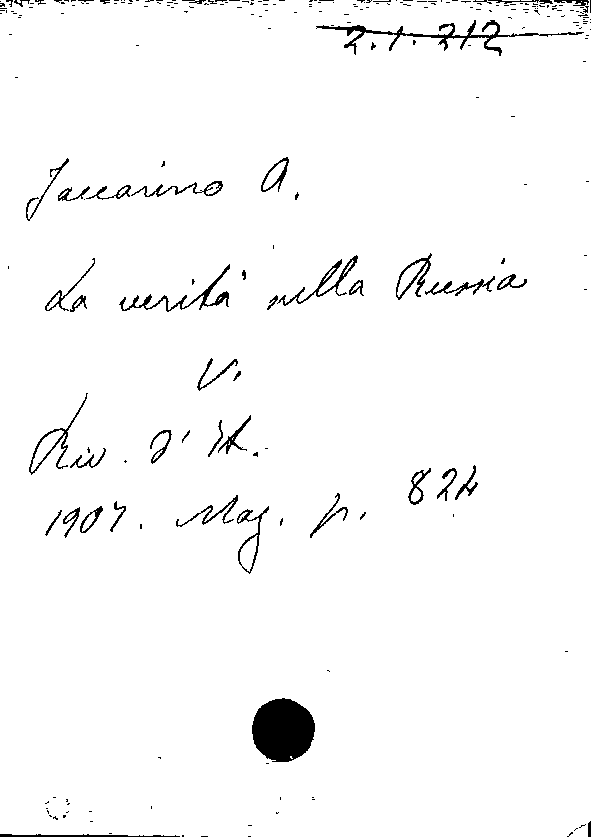 2.1.212
Jaccarino A.
La verità nella Russia
V.
Riv. d'It.
1907. Mag. p. 824